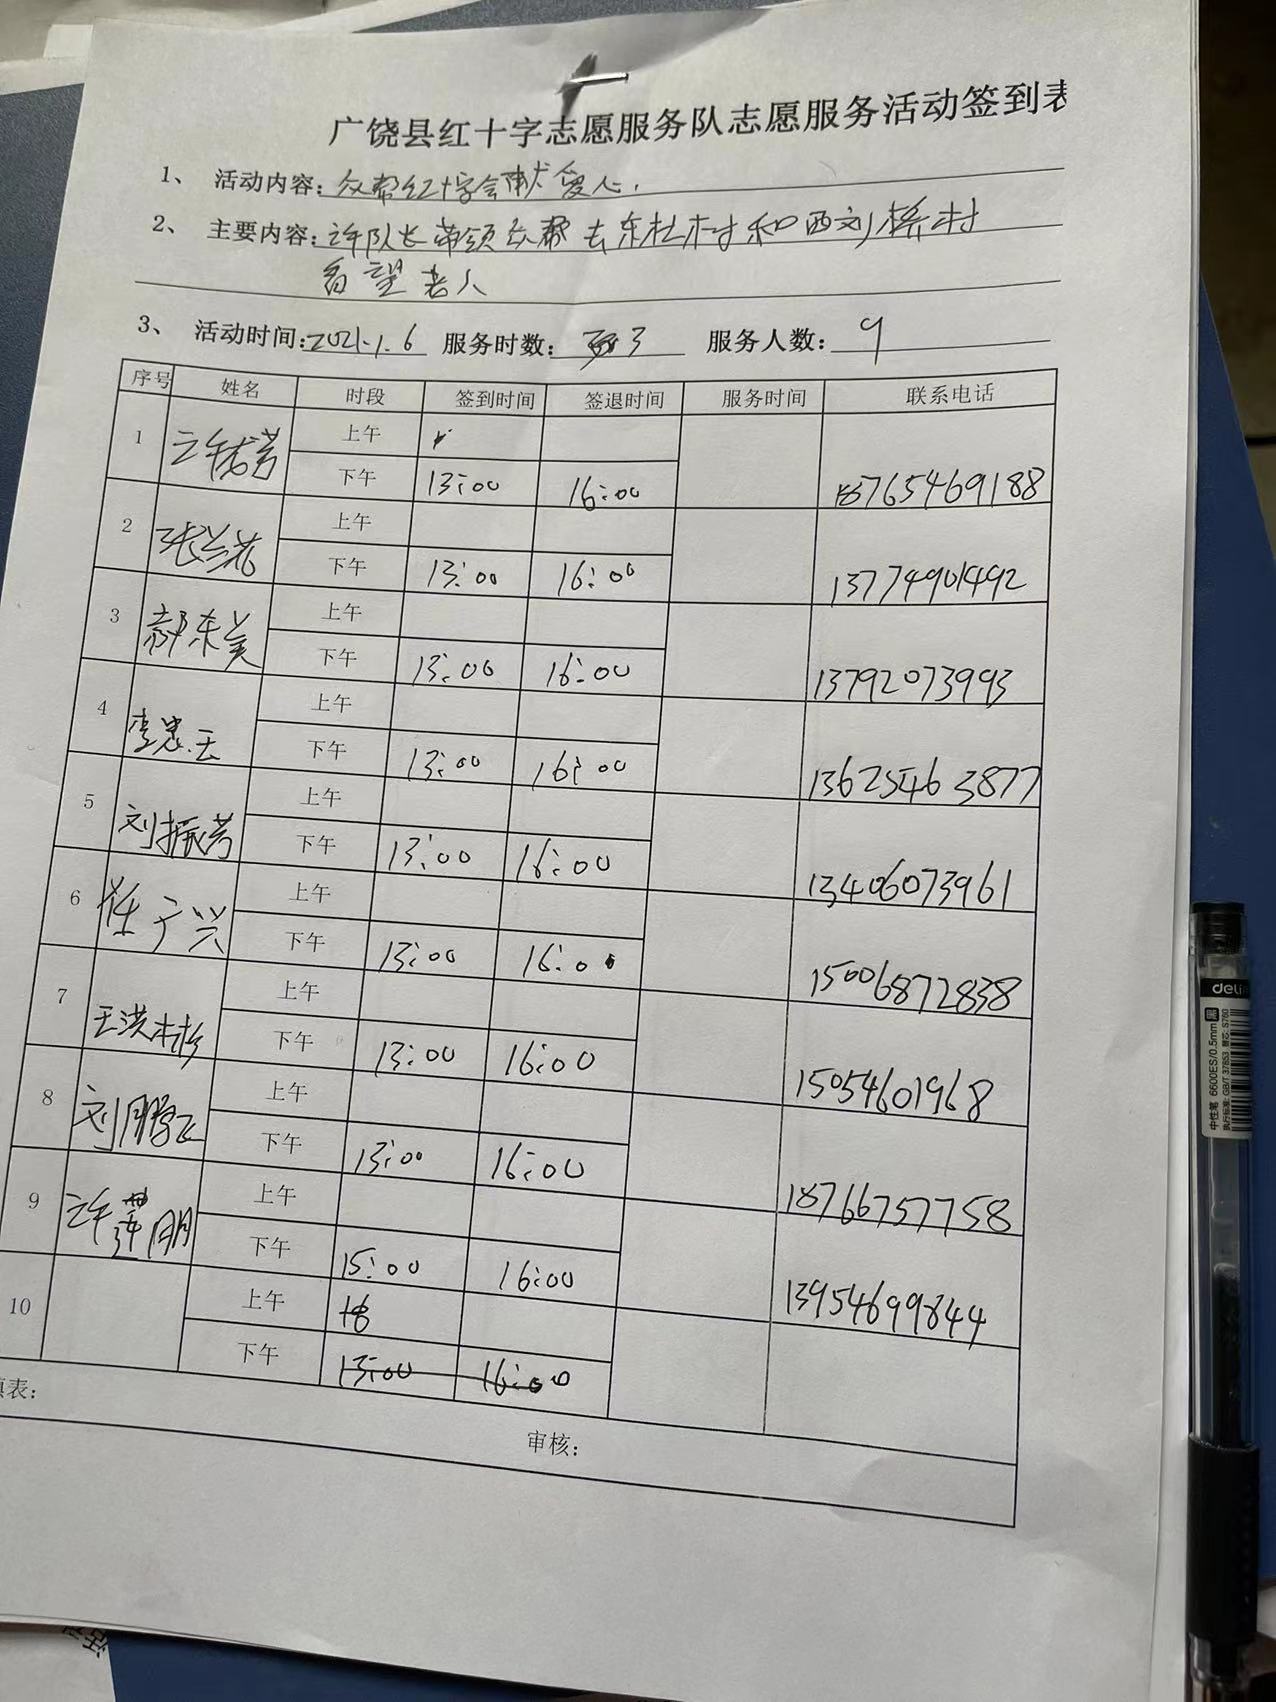 广饶县红十字志愿服务队志愿服务活动签到表
1、 活动内容: 众帮红十字会献爱心.
2、 主要内容: 许队长带领众帮去东杜村和西刘桥村
看望老人
3、 活动时间: 2021.1.6 服务时数: 3 服务人数: 9
序号 姓名 时段 签到时间 签退时间 服务时间 联系电话
1 上午
下午 13:00 16:00 18765469188
2 张兰芳 上午
下午 13:00 16:00 13774901492
3 郝东美 上午
下午 13:00 16:00 13792073993
4 李忠玉 上午
下午 13:00 16:00 13625463877
5 刘振芳 上午
下午 13:00 16:00 13406073961
6 任广兴 上午
下午 13:00 16:00 15006872838
7 王洪彬 上午
下午 13:00 16:00 15054601968
8 刘鹏飞 上午
下午 13:00 16:00 18766757758
9 许 朋 上午
下午 15:00 16:00 13954699844
10 上午
下午 13:00 16:00
填表:
审核:
deli
中性笔 6600ES/0.5mm 黑
执行标准: GB/T 37853 替芯: S760